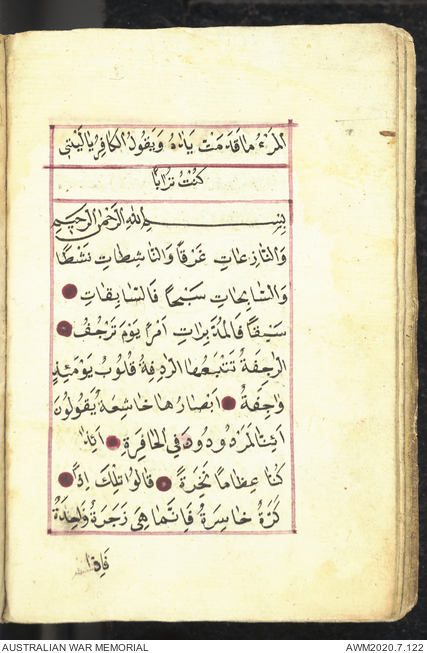 الْمَرْءُ مَا قَدَّمَتْ يَدَاهُ وَيَقُولُ الْكَافِرُ يَا لَيْتَنِي
كُنْتُ تُرَابًا
بِسْمِ اللهِ الرَّحْمٰنِ الرَّحِيمِ
وَالنَّازِعَاتِ غَرْقًا وَالنَّاشِطَاتِ نَشْطًا
وَالسَّابِحَاتِ سَبْحًا فَالسَّابِقَاتِ
سَبْقًا فَالْمُدَبِّرَاتِ اَمْرًا يَوْمَ تَرْجُفُ
الرَّاجِفَةُ تَتْبَعُهَا الرَّادِفَةُ قُلُوبٌ يَوْمَئِذٍ
وَاجِفَةٌ اَبْصَارُهَا خَاشِعَةٌ يَقُولُونَ
اَئِنَّا لَمَرْدُودُونَ فِي الْحَافِرَةِ اَئِذَا
كُنَّا عِظَامًا نَخِرَةً قَالُوا تِلْكَ اِذًا
كَرَّةٌ خَاسِرَةٌ فَاِنَّمَا هِيَ زَجْرَةٌ وَاحِدَةٌ
فَاِذَا
AUSTRALIAN WAR MEMORIAL
AWM2020.7.122